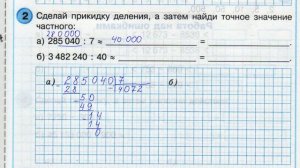 2 Сделай прикидку деления, а затем найди точное значение
частного:
280000
а) 285 040 : 7 ≈ 40000 =
б) 3 482 240 : 40 ≈ =
а) 285040 7 б)
28 14072
50
49
14
14
0